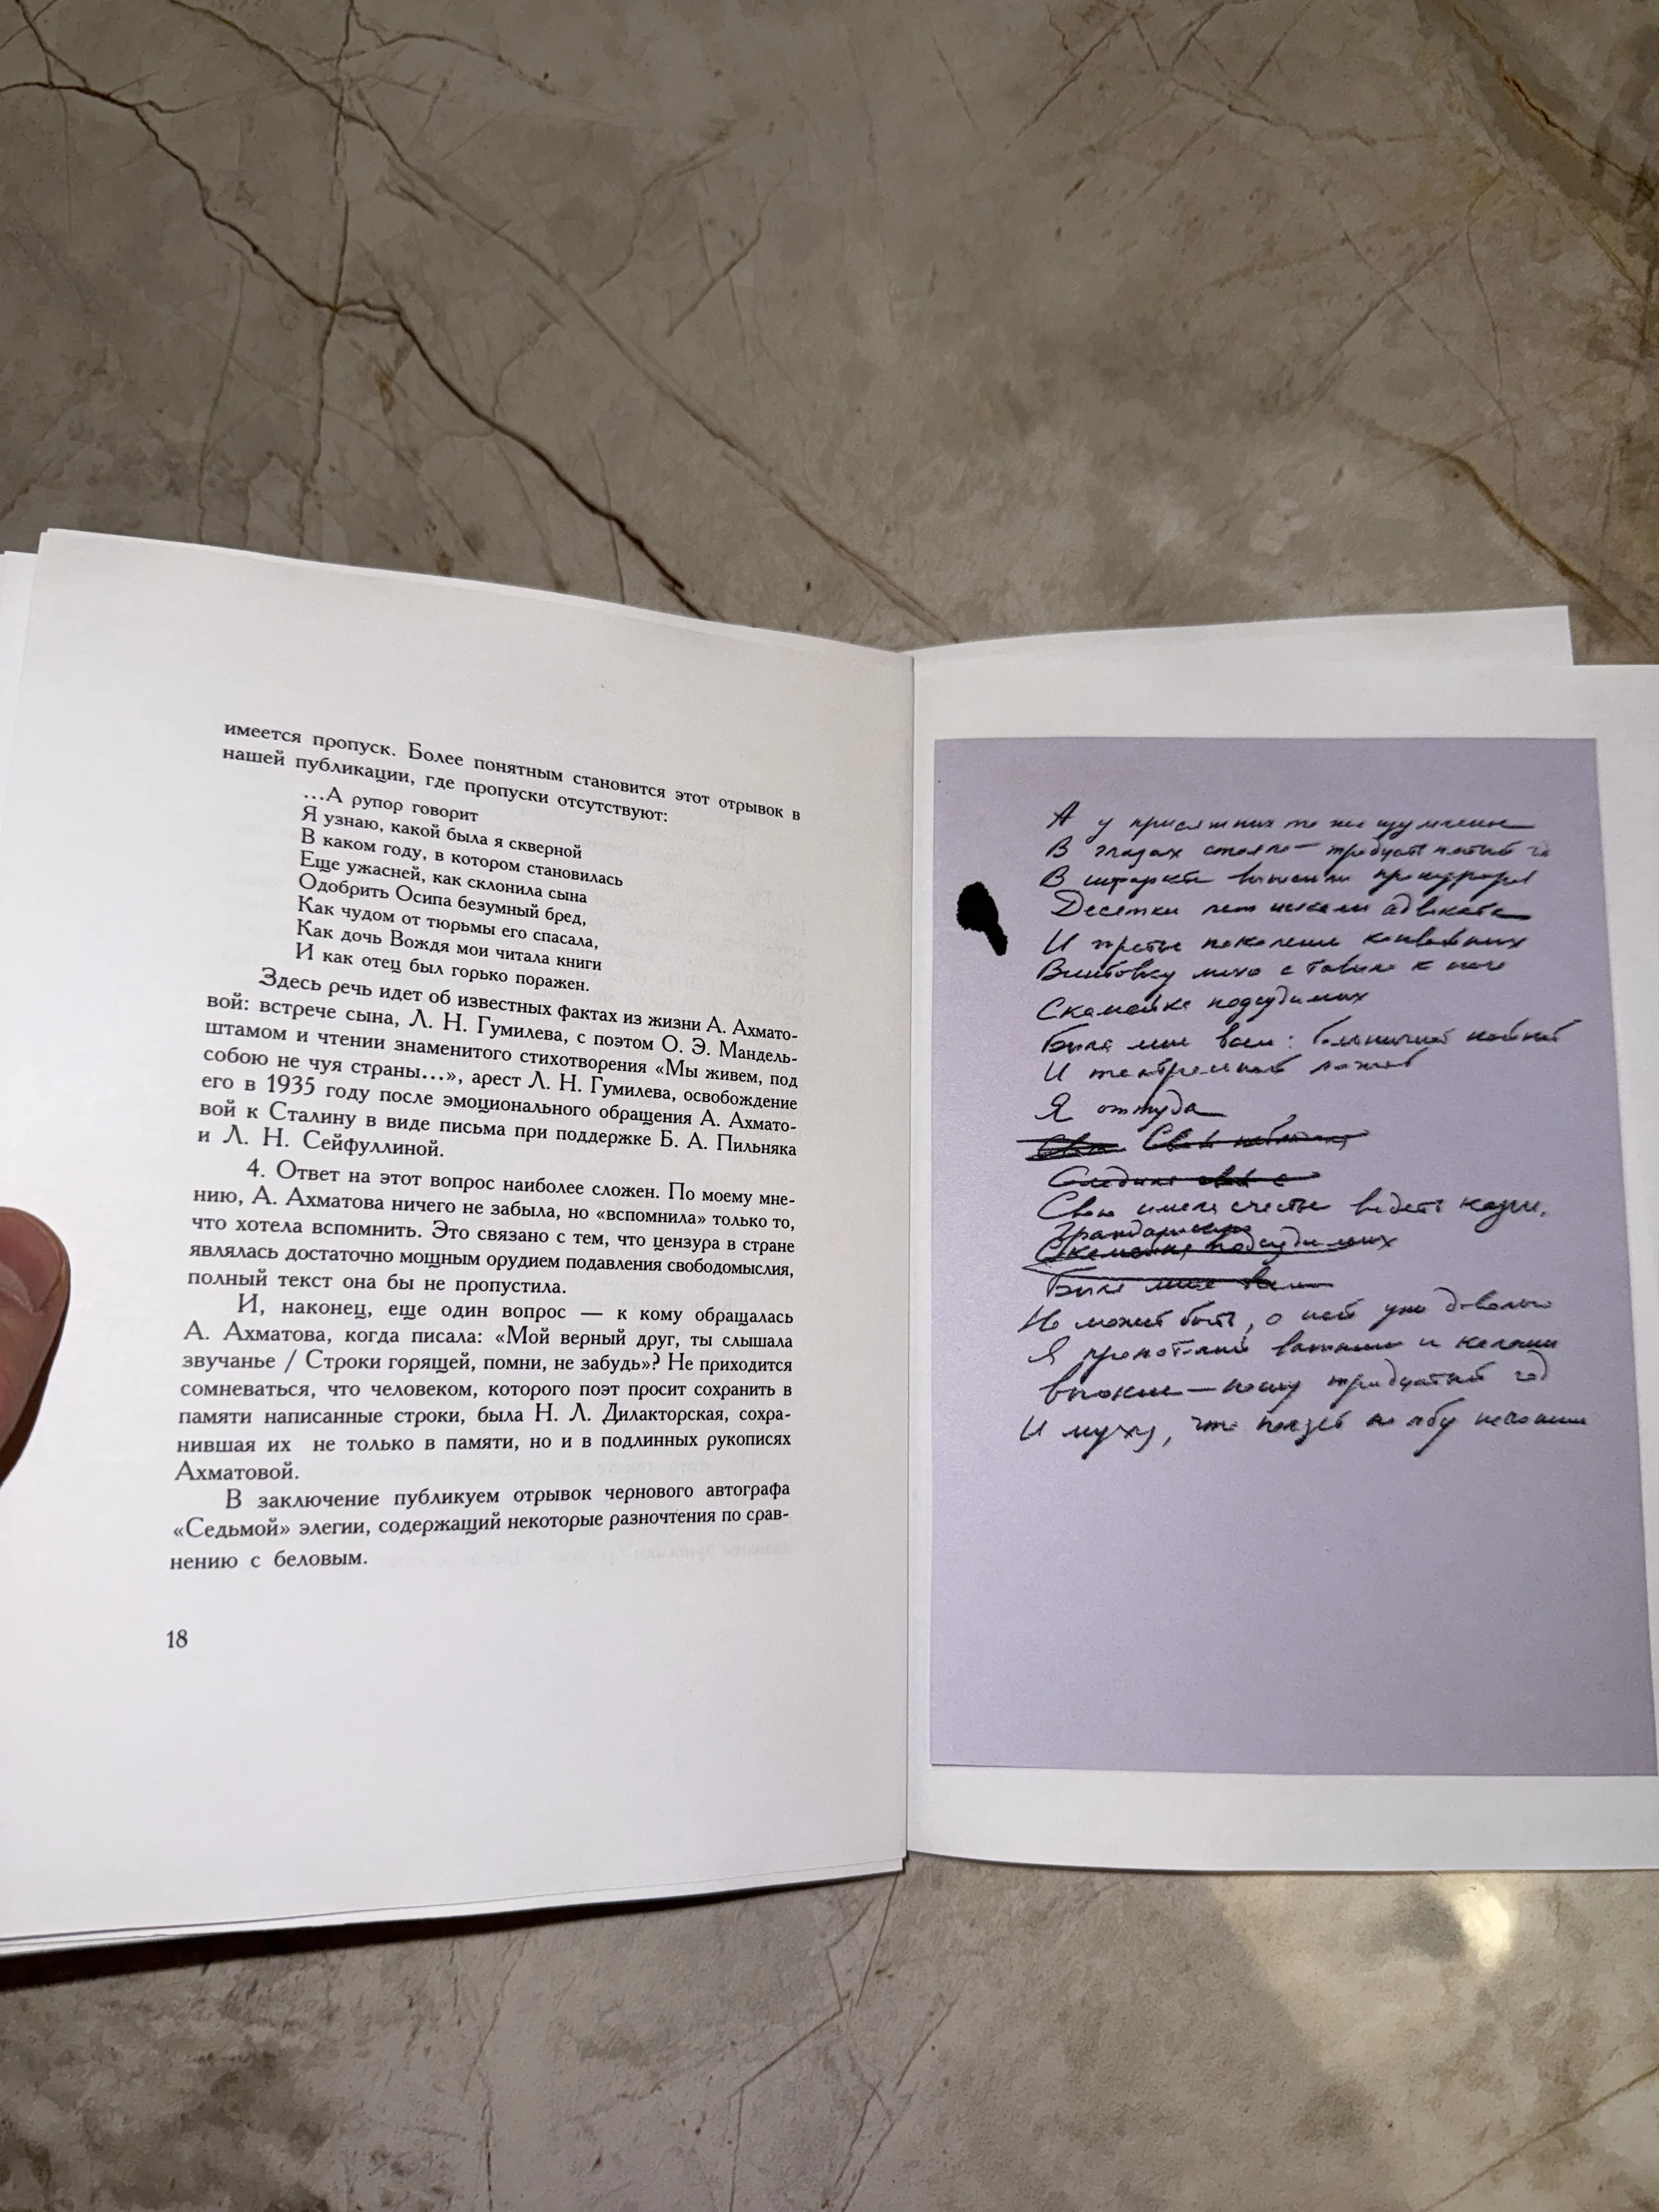 имеется пропуск. Более понятным становится этот отрывок в
нашей публикации, где пропуски отсутствуют:
…А рупор говорит
Я узнаю, какой была я скверной
В каком году, в котором становилась
Еще ужасней, как склонила сына
Одобрить Осипа безумный бред,
Как чудом от тюрьмы его спасала,
Как дочь Вождя мои читала книги
И как отец был горько поражен.
Здесь речь идет об известных фактах из жизни А. Ахмато-
вой: встрече сына, Л. Н. Гумилева, с поэтом О. Э. Мандель-
штамом и чтении знаменитого стихотворения «Мы живем, под
собою не чуя страны…», арест Л. Н. Гумилева, освобождение
его в 1935 году после эмоционального обращения А. Ахмато-
вой к Сталину в виде письма при поддержке Б. А. Пильняка
и Л. Н. Сейфуллиной.
4. Ответ на этот вопрос наиболее сложен. По моему мне-
нию, А. Ахматова ничего не забыла, но «вспомнила» только то,
что хотела вспомнить. Это связано с тем, что цензура в стране
являлась достаточно мощным орудием подавления свободомыслия,
полный текст она бы не пропустила.
И, наконец, еще один вопрос — к кому обращалась
А. Ахматова, когда писала: «Мой верный друг, ты слышала
звучанье / Строки горящей, помни, не забудь»? Не приходится
сомневаться, что человеком, которого поэт просит сохранить в
памяти написанные строки, была Н. Л. Дилакторская, сохра-
нившая их не только в памяти, но и в подлинных рукописях
Ахматовой.
В заключение публикуем отрывок чернового автографа
«Седьмой» элегии, содержащий некоторые разночтения по срав-
нению с беловым.
18
А у присяжных то же изумление
В глазах стояло — тридцать пятый
В инфаркте выносили прокурора
Десятки лет искали адвоката
И третье поколение конвойных
Винтовку лихо ставило к ноге
Скамейка подсудимых
Была мне всем: больничной койкой
И театральной ложей
Я оттуда
Свою имела счастье видеть казнь,
Скамейка подсудимых
Была мне всем
Не может быть, о ней уже довольно
Я
— тридцатый год
И муха, что ползет по лбу